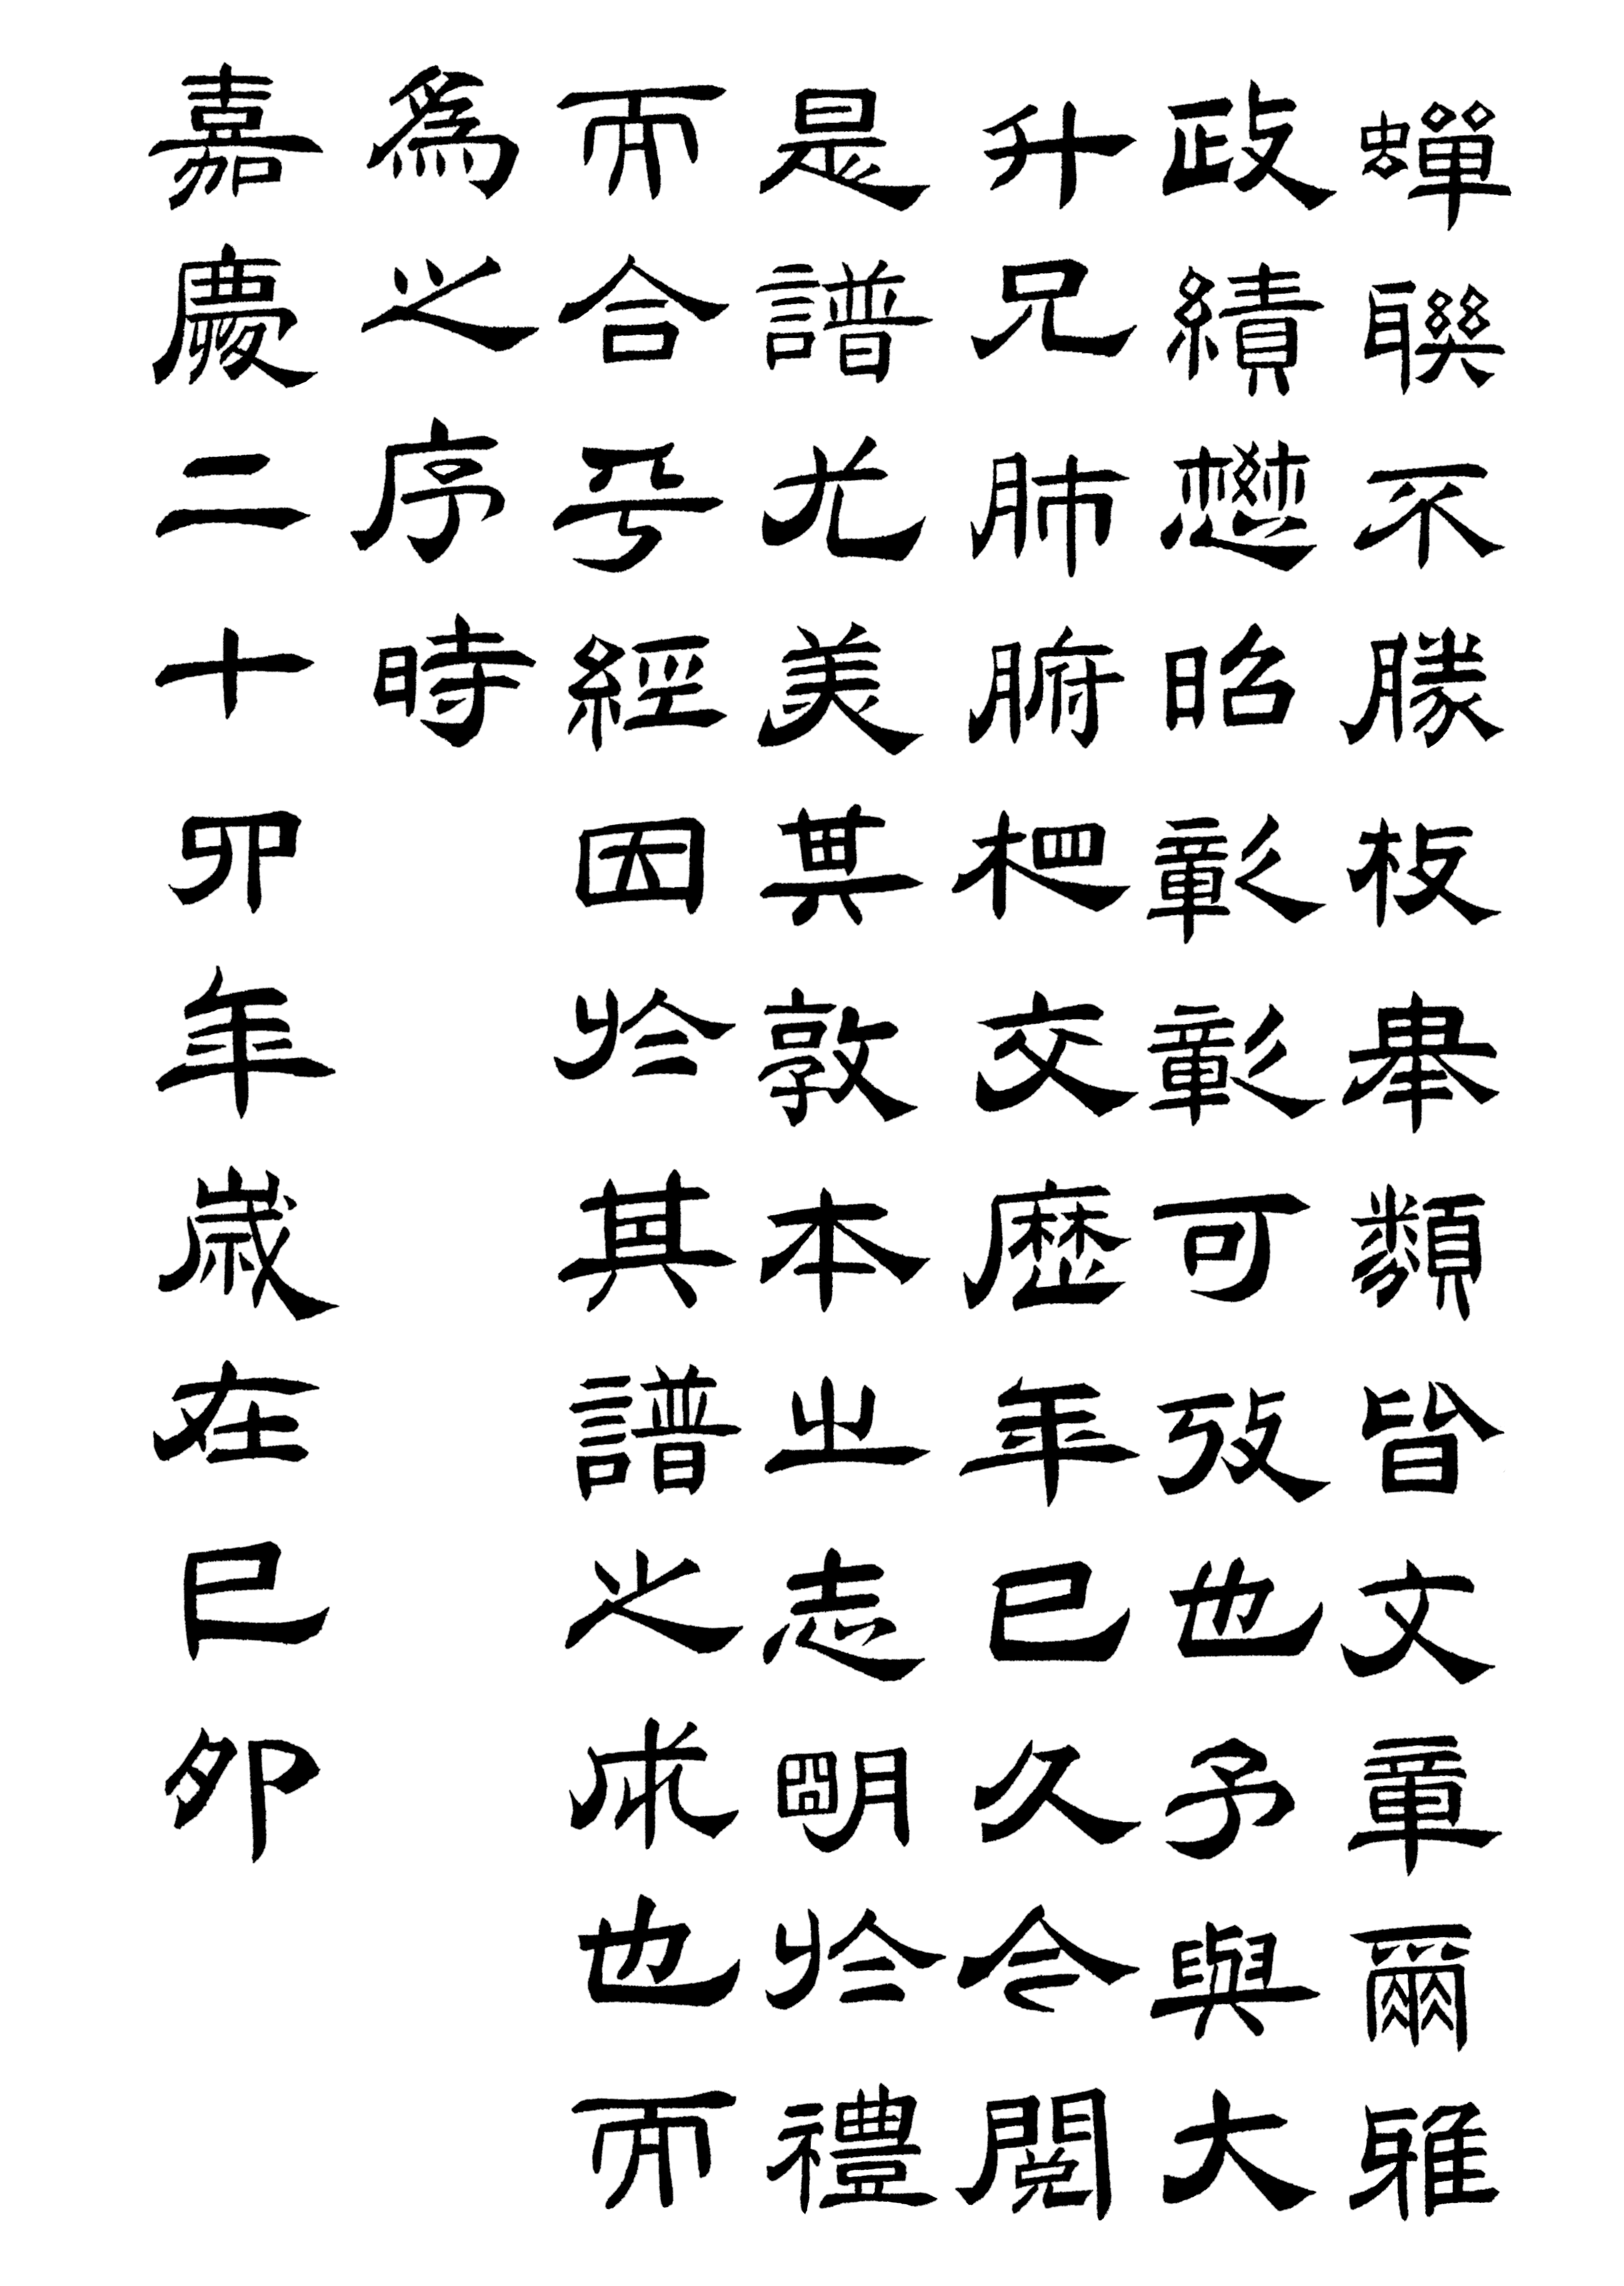 蟬聯不勝枚舉類皆文章爾雅
政績懋昭彰彰可攷也予與大
升兄肺腑杷交歷年已久今閱
是譜尤美其敦本之志朙於禮
而合乎經因於其譜之成也而
爲之序時
嘉慶二十四年歲在己卯